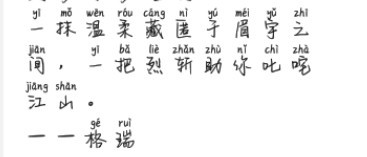 yī mǒ wēn róu cáng nì yú méi yǔ zhī
一抹温柔藏匿于眉宇之
jiān yì bǎ liè zhǎn zhù nǐ chì zhà
间，一把烈斩助你叱咤
jiāng shān
江山。
gé ruì
——格瑞